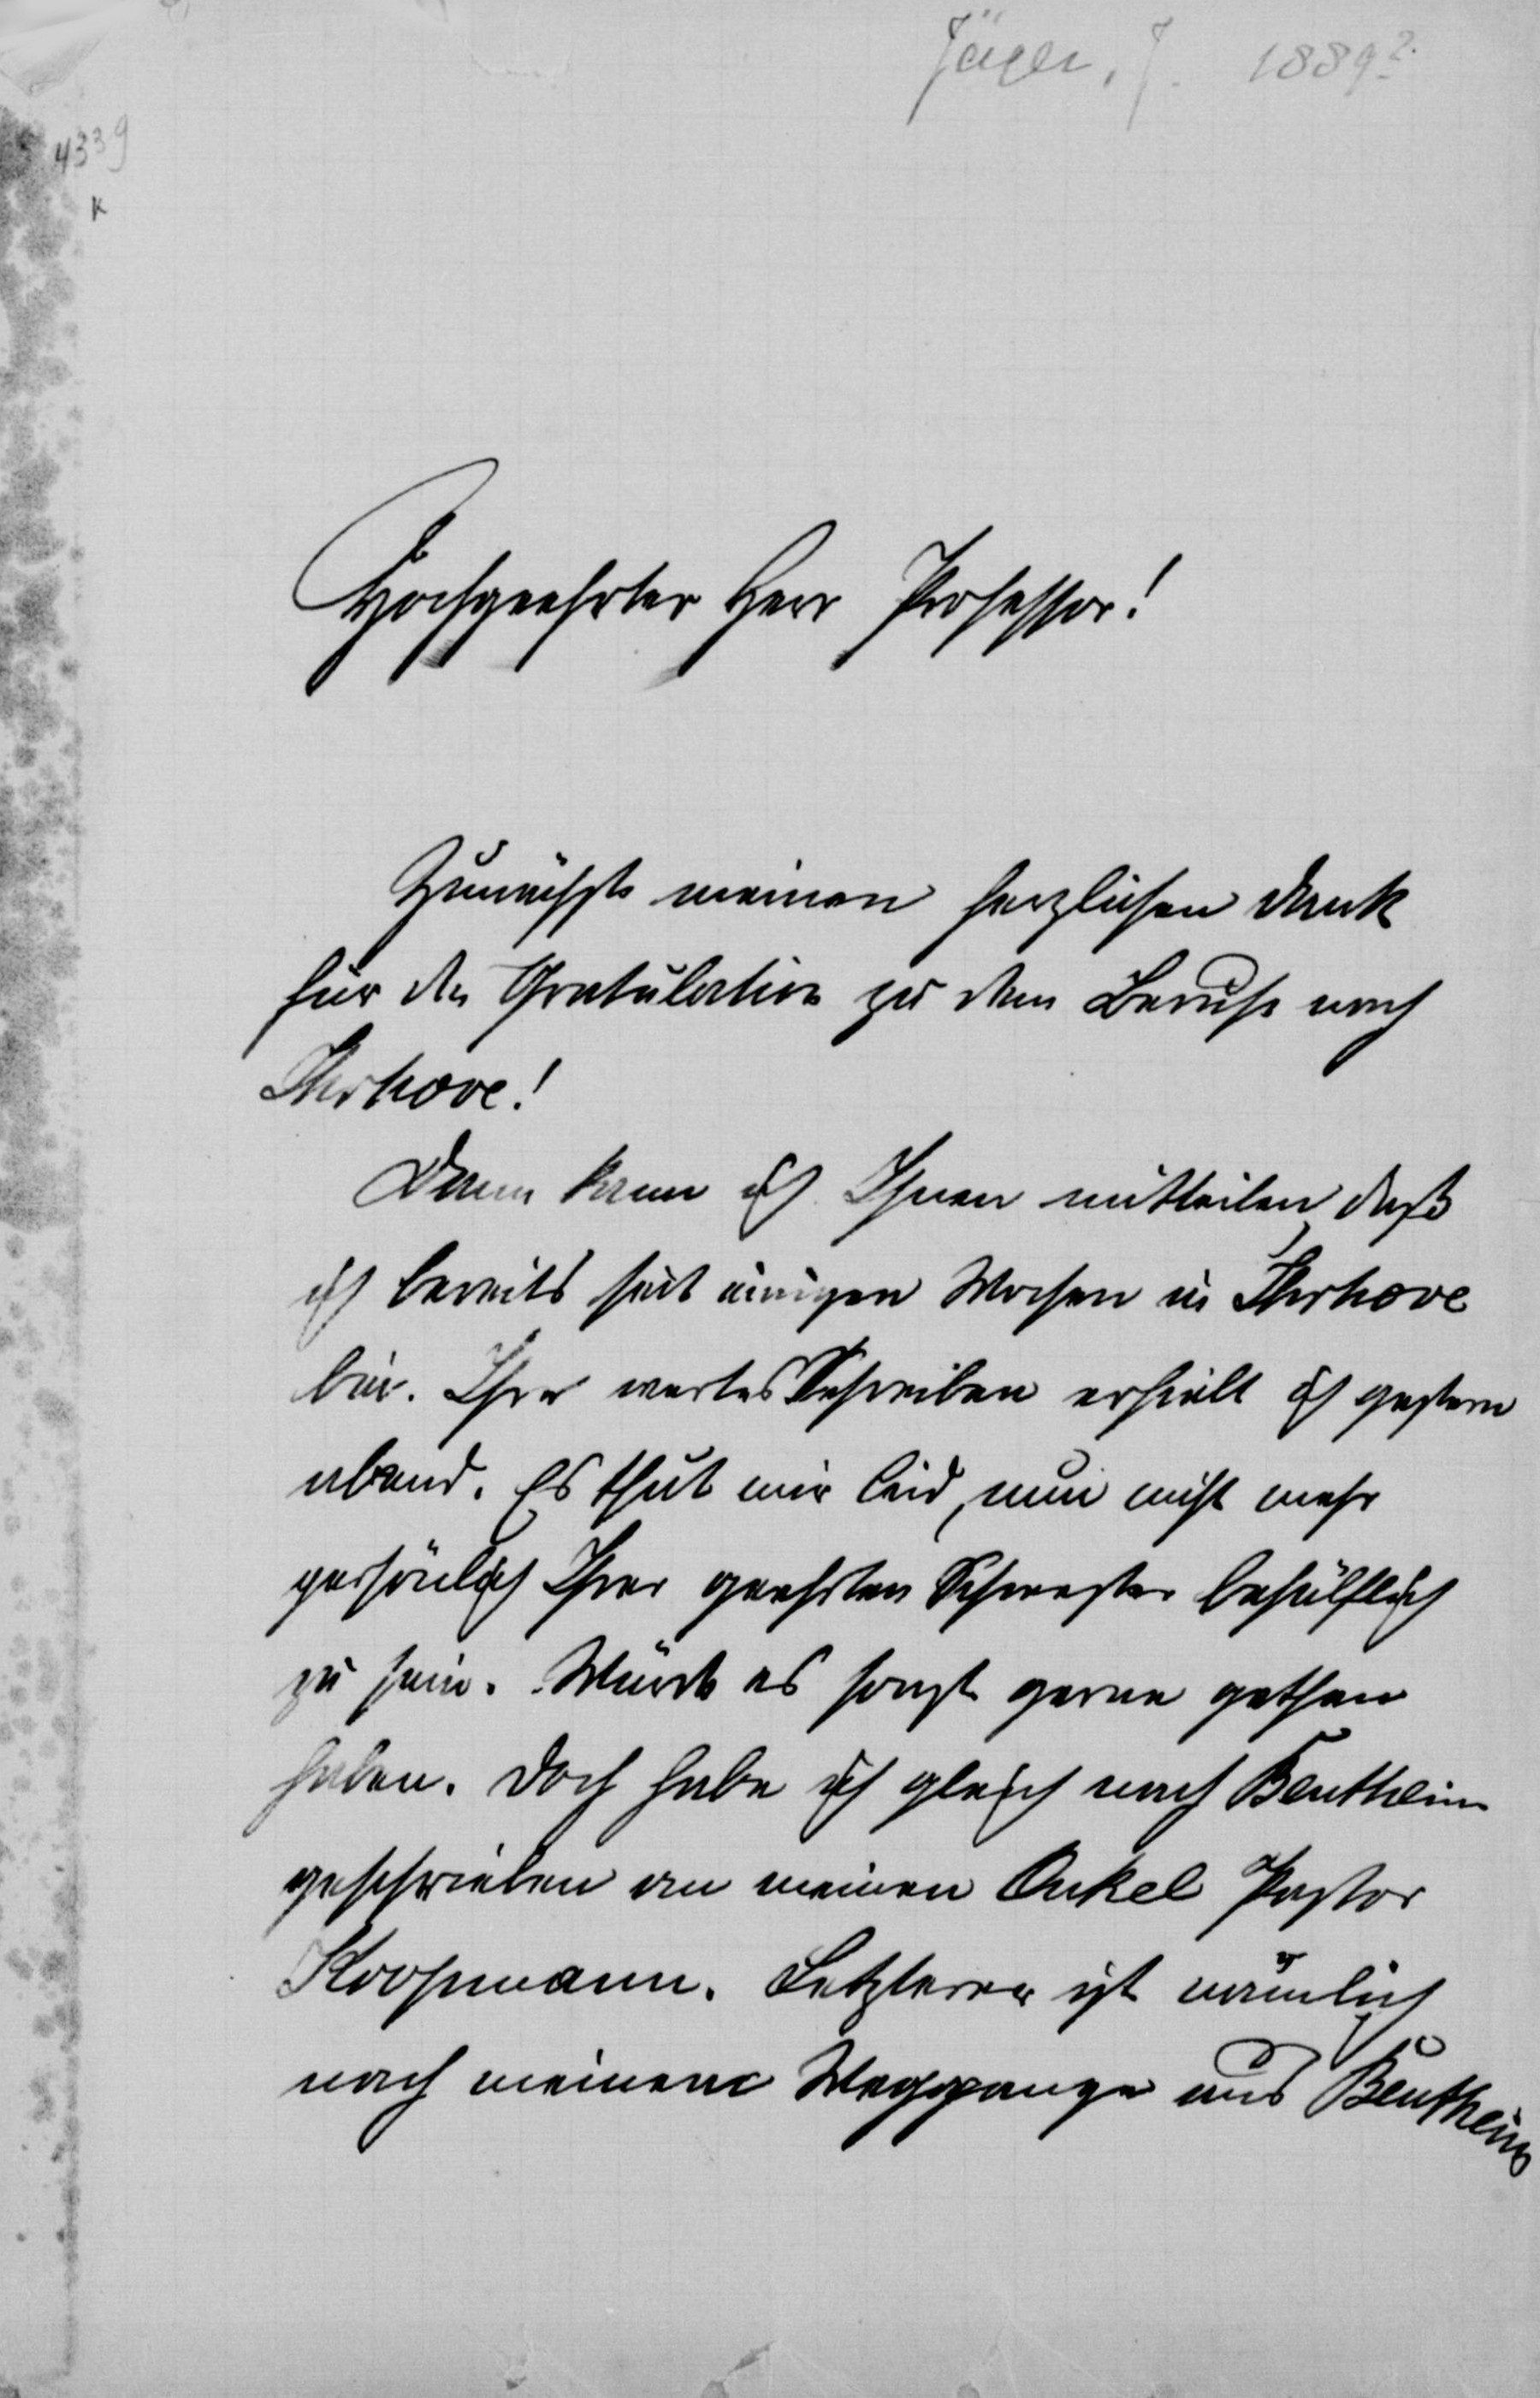 Jäger, J. 1889?
4339
K
Hochgeehrter Herr Professor!
Zunächst meinen herzlichen Dank
für die Gratulation zu dem Berufe nach
Ihrhove!
Dann kann ich Ihnen mitteilen, daß
ich bereits seit einigen Wochen in Ihrhove
bin. Ihr wertes Schreiben erhielt ich gestern
abend. Es thut mir leid, nun nicht mehr
persönlich Ihrer geehrten Schwester behülflich
zu sein. Würde es sonst gerne gethan
haben. Doch habe ich gleich nach Bentheim
geschrieben an meinen Onkel Pastor
Koopmann. Letzterer ist nämlich
nach meinem Weggange aus Bentheim